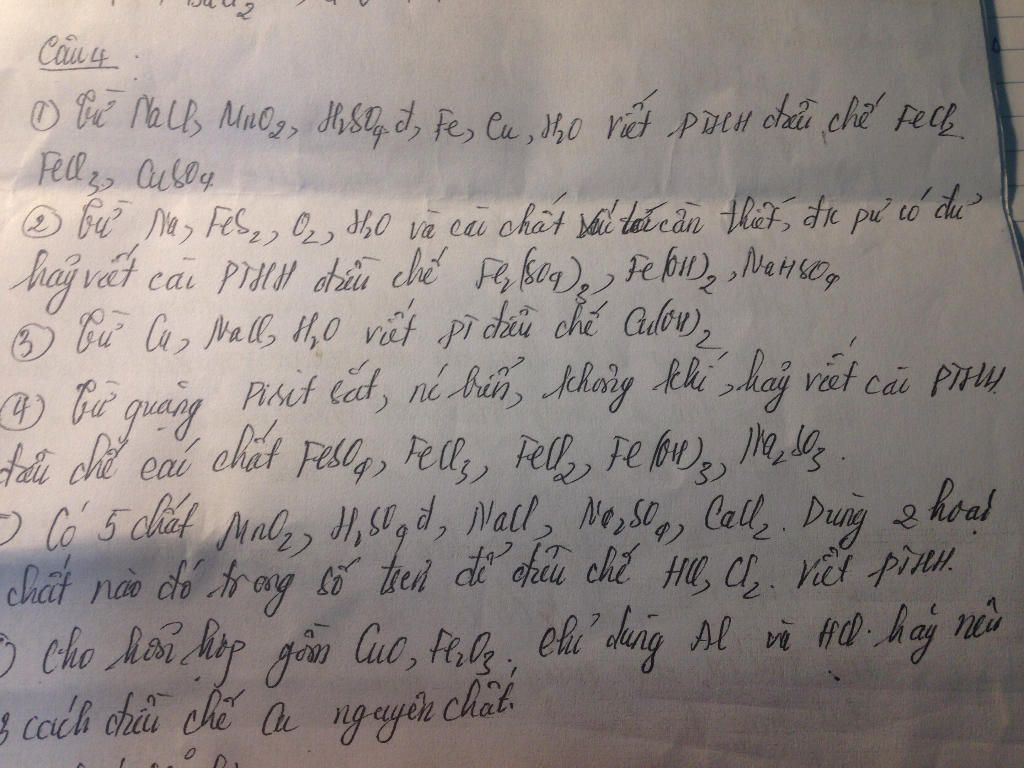 Câu 4
① Từ NaCl, MnO2, H2SO4 đ, Fe, Cu, H2O viết PTHH điều chế FeCl2
FeCl3, CuSO4
② Từ Na, FeS2, O2, H2O và các chất cần thiết, đk pứ có đủ
hãy viết các PTHH điều chế Fe2(SO4)3, Fe(OH)2, NaHSO4
③ Từ Cu, NaCl, H2O viết pt điều chế Cu(OH)2
④ Từ quặng Pirit sắt, nc biển, không khí, hãy viết các PTHH
điều chế các chất FeSO4, FeCl3, FeCl2, Fe(OH)3, Na2SO3.
Có 5 chất MnO2, H2SO4 đ, NaCl, Na2SO4, CaCl2. Dùng 2 hoặc
chất nào đó trong số trên để điều chế HCl, Cl2. Viết PTHH.
Cho hỗn hợp gồm CuO, Fe2O3. chỉ dùng Al và HCl. hãy nêu
3 cách điều chế Cu nguyên chất.